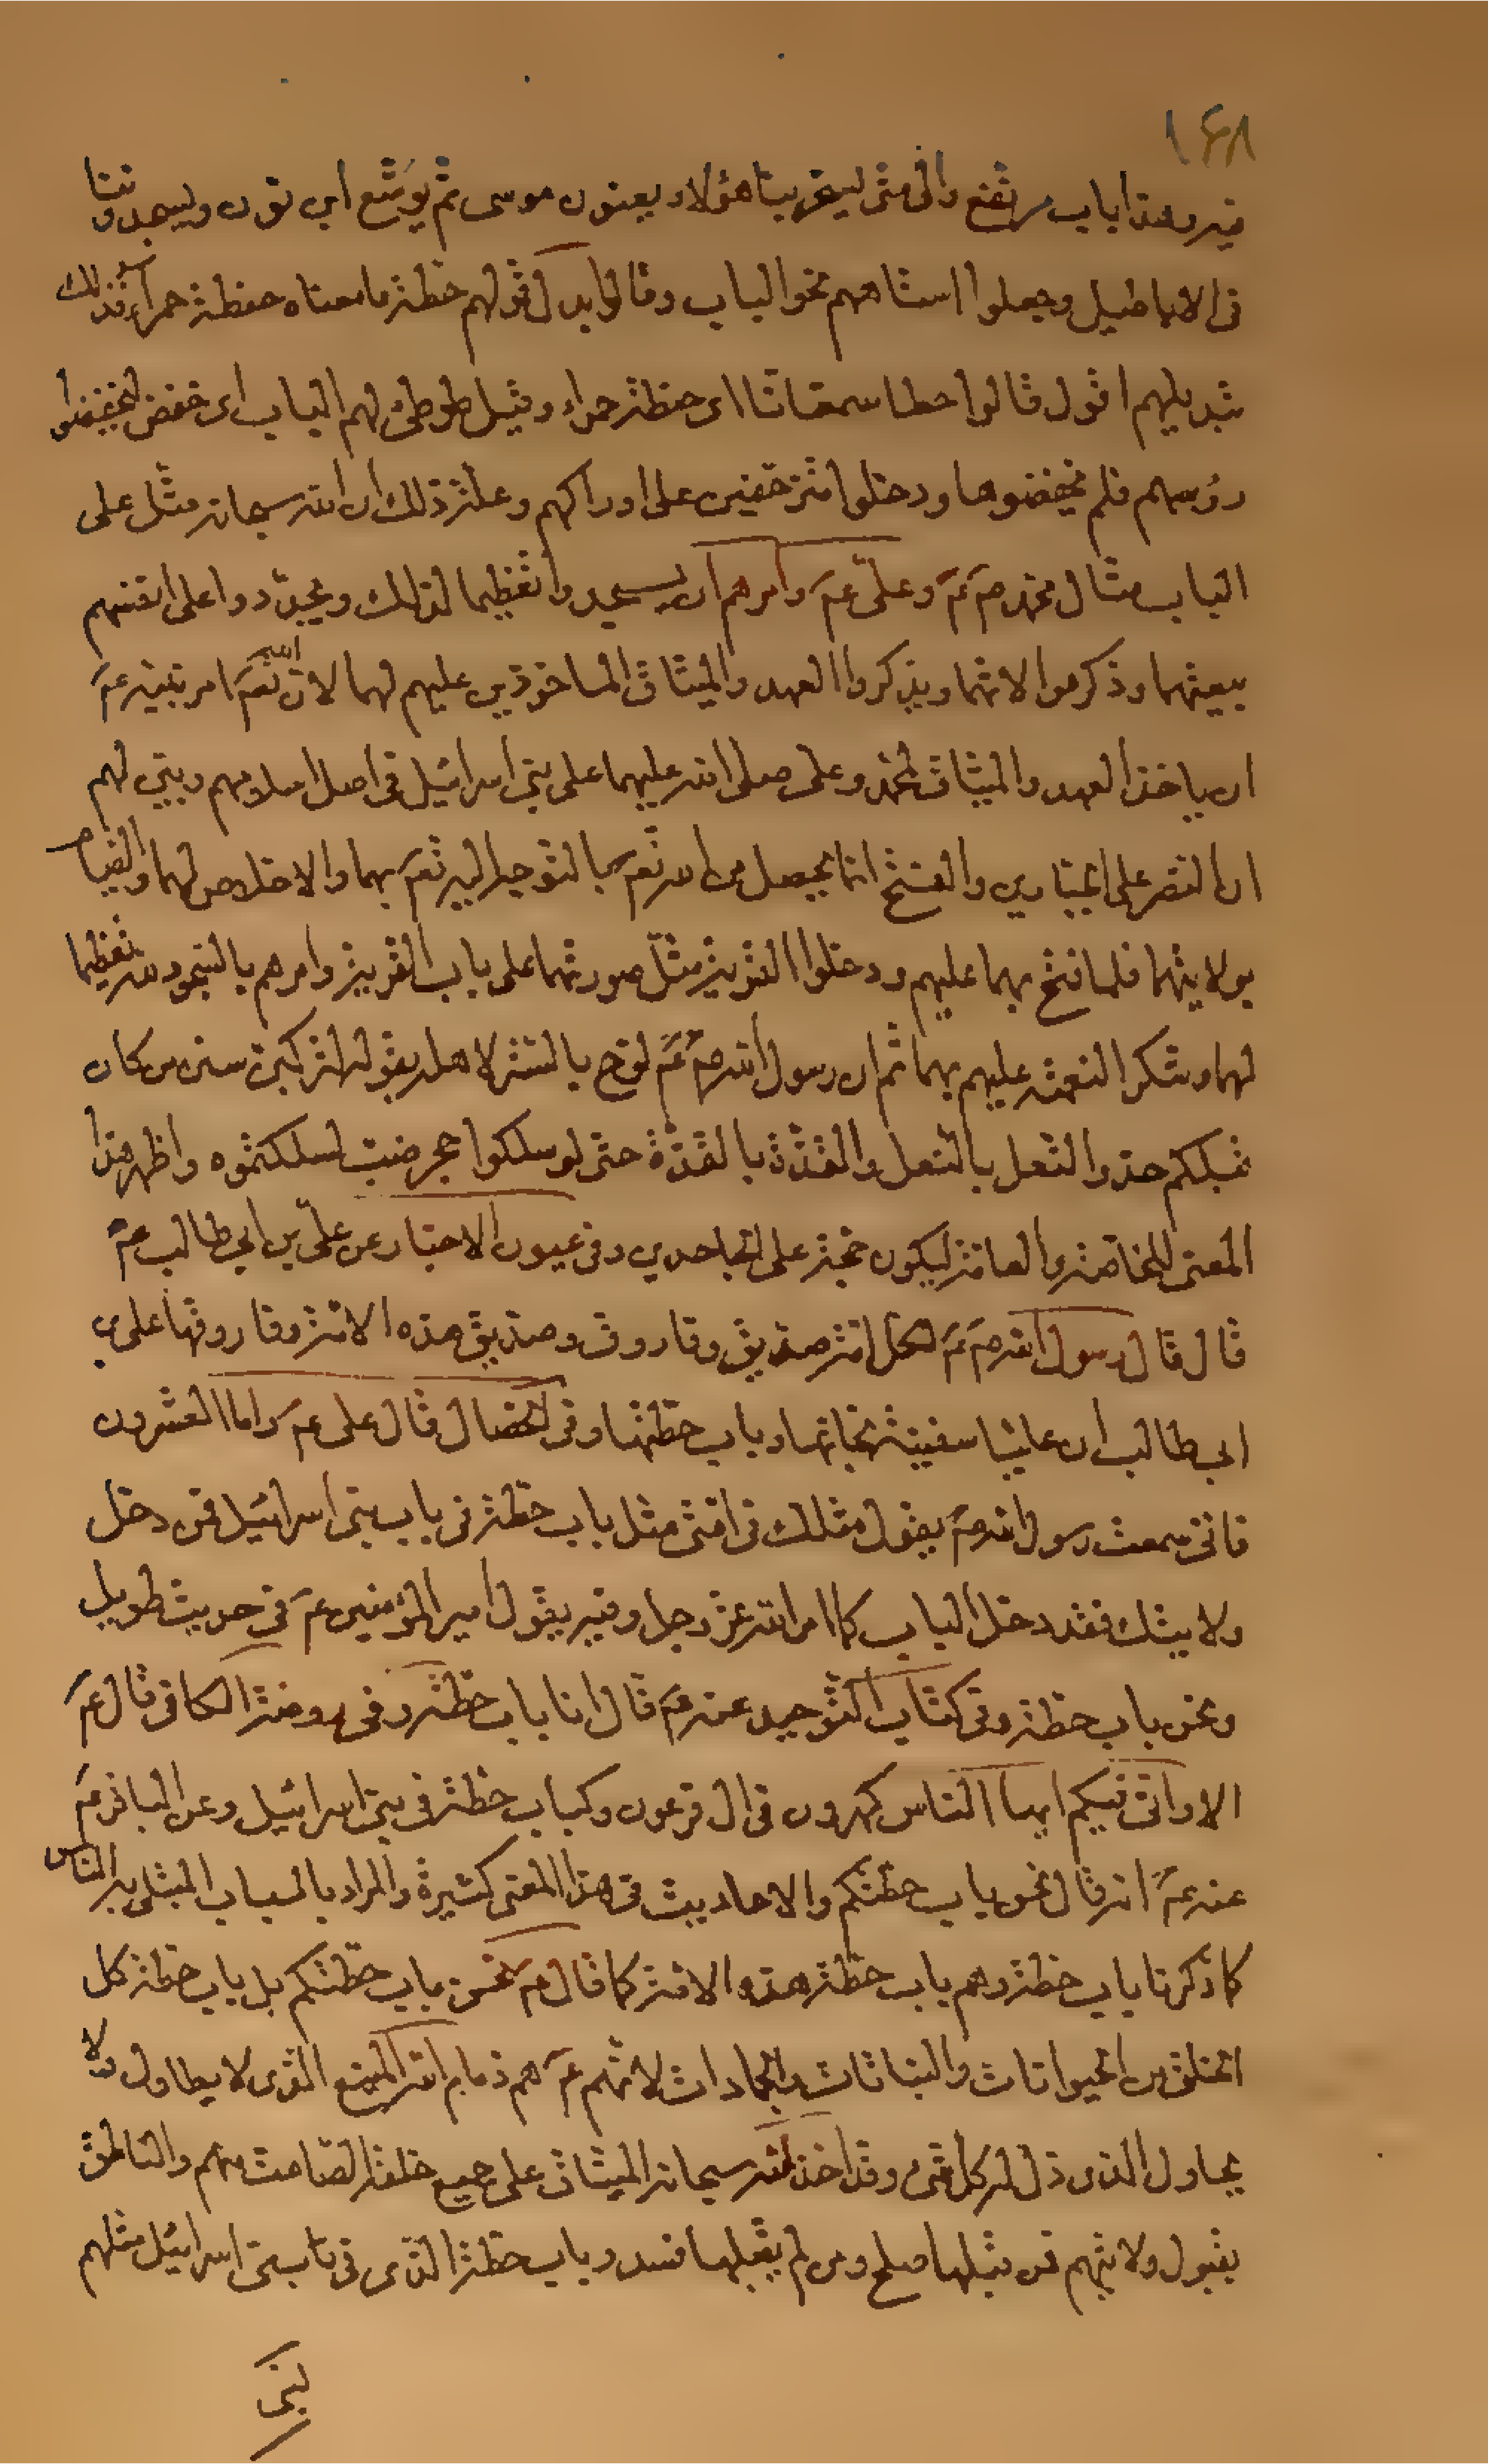 ١٤٨
فيه وهذا باب مرتفع والى متى ليسخر بنا هؤلاء ويعنون موسى ثم يوشع ابن نون ويسجدوننا
فى الاباطيل وجعلوا استاههم نحو الباب وقالوا بدل قولهم حطة ما معناه حنطة حمراء فذلك
تبديلهم اقول قالوا حطا سمقاتا اى حنطة حمراء وقيل طوطئ لهم الباب اى خفض ليخفضوا
رؤسهم فلم يخفضوها ودخلوا متزحفين على اوراكهم وعلة ذلك ان الله سبحانه مثل على
الباب مثال محمد ص ع م وعلى ع م وامرهم ان يسجدوا تعظيما لذلك ويجددوا على انفسهم
بيعتهما وذكر موالاتهما ويذكروا العهد والميثاق الماخوذين عليهم لهما لان الله تعم امر نبيه ع م
ان ياخذ العهد والميثاق لمحمد وعلى صلى الله عليهما على بنى اسرائيل فى اصل اسلامهم ويبين لهم
ان النصر على الجبارين والفتح انما يحصل من الله تعم بالتوجه اليه تعم بهما والاخلاص لهما والقيام
بولايتهما فلما فتح بهما عليهم ودخلوا القرية مثل صورتهما على باب القرية وامرهم بالسجود لله تعظيما
لهما وشكرا لنعمته عليهم بهما ثم ان رسول الله ص ع م لوح بالستر لاهله بقوله لتركبن سنن من كان
قبلكم حذو النعل بالنعل والقذة بالقذة حتى لو سلكوا جحر ضب لسلكتموه واظهر هذا
المعنى للخاصة والعامة ليكون حجة على الجاحدين وفى عيون الاخبار عن على بن ابى طالب ع م
قال قال رسول الله ص ع م لكل امة صديق وفاروق وصديق هذه الامة وفاروقها على بن
ابى طالب ان عليا سفينة نجاتها وباب حطتها وفى الخصال قال على ع م واما العشرون
فانى سمعت رسول الله ص م يقول مثلك فى امتى مثل باب حطة فى باب بنى اسرائيل فمن دخل
ولايتك فقد دخل الباب كما امر الله عز وجل وفيه يقول امير المؤمنين ع م فى حديث طويل
ونحن باب حطة وفى كتاب التوحيد عنه ع م قال انا باب حطة وفى روضة الكافى قال ع م
الا وانى فيكم ايها الناس كهرون فى ال فرعون وكباب حطة فى بنى اسرائيل وعن الباقر ع م
عنه ع م انه قال نحن باب حطتكم والاحاديث فى هذا المعنى كثيرة والمراد بالباب المبتلى به الناس
كما ذكرنا باب حطة وهم باب حطة هذه الامة كما قال ع م نحن باب حطتكم بل باب حطة كل
الخلق من الحيوانات والنباتات والجمادات لانهم ع م هم ذمام الله المنيع الذى لا يطاول ولا
يحاول الذى ذل له كل شئ وقد اخذ الله سبحانه الميثاق على جميع خلقه الصامت منهم والناطق
بقبول ولايتهم فمن قبلها صلح ومن لم يقبلها فسد وباب حطة الذى فى باب بنى اسرائيل مثلهم
لبنى